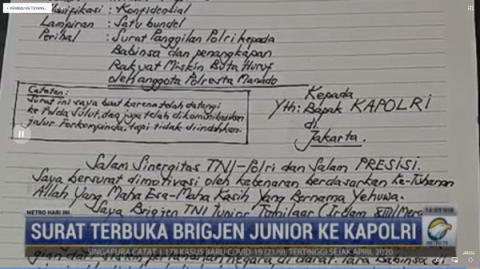 Klasifikasi : Konfidensial
Lampiran : Satu bundel
Perihal : Surat Panggilan Polri kepada
Babinsa dan penangkapan
Rakyat Miskin Buta Huruf
oleh anggota Polresta Manado
Catatan:
Surat ini saya buat karena telah datangi
ke Polda Sulut, dan juga telah dikomunikasikan
jalur Forkopimda, tapi tidak diindahkan.
Kepada
Yth: Bapak KAPOLRI
di
Jakarta.
Salam Sinergitas TNI-Polri dan Salam PRESISI.
Saya bersurat dimotivasi oleh kebenaran berdasarkan Ke-Tuhanan
Allah Yang Maha Esa-Maha Kasih Yang Bernama Yehuwa.
Saya Brigjen TNI Junior Tumilaar (Irdam XIII/Mer
METRO HARI INI
SURAT TERBUKA BRIGJEN JUNIOR KE KAPOLRI
SINGAPURA CATAT 1.178 KASUS BARU COVID-19 (21/9), TERTINGGI SEJAK APRIL 2020
METRO TV